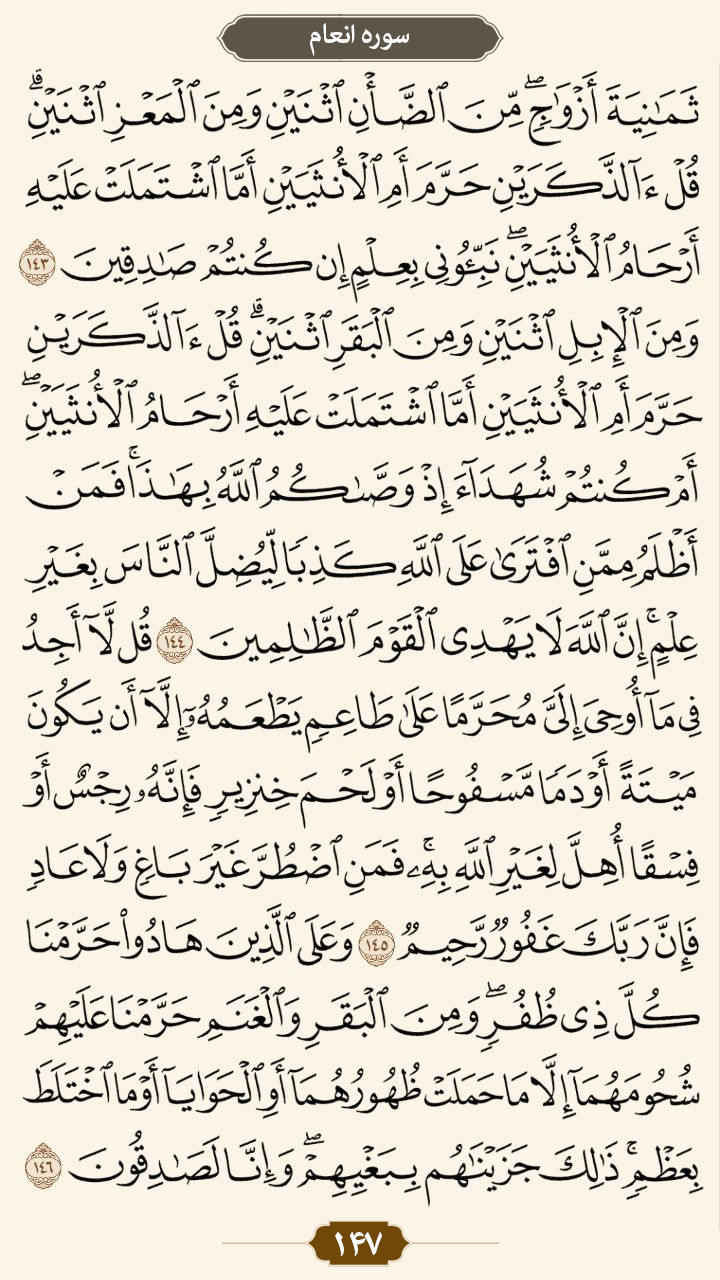 سوره انعام
ثَمَٰنِيَةَ أَزْوَٰجٍۖ مِّنَ ٱلضَّأْنِ ٱثْنَيْنِ وَمِنَ ٱلْمَعْزِ ٱثْنَيْنِۗ
قُلْ ءَآلذَّكَرَيْنِ حَرَّمَ أَمِ ٱلْأُنثَيَيْنِ أَمَّا ٱشْتَمَلَتْ عَلَيْهِ
أَرْحَامُ ٱلْأُنثَيَيْنِۖ نَبِّـُٔونِى بِعِلْمٍ إِن كُنتُمْ صَٰدِقِينَ ١٤٣
وَمِنَ ٱلْإِبِلِ ٱثْنَيْنِ وَمِنَ ٱلْبَقَرِ ٱثْنَيْنِۗ قُلْ ءَآلذَّكَرَيْنِ
حَرَّمَ أَمِ ٱلْأُنثَيَيْنِ أَمَّا ٱشْتَمَلَتْ عَلَيْهِ أَرْحَامُ ٱلْأُنثَيَيْنِۖ
أَمْ كُنتُمْ شُهَدَآءَ إِذْ وَصَّىٰكُمُ ٱللَّهُ بِهَٰذَاۚ فَمَنْ
أَظْلَمُ مِمَّنِ ٱفْتَرَىٰ عَلَى ٱللَّهِ كَذِبًا لِّيُضِلَّ ٱلنَّاسَ بِغَيْرِ
عِلْمٍۚ إِنَّ ٱللَّهَ لَا يَهْدِى ٱلْقَوْمَ ٱلظَّٰلِمِينَ ١٤٤ قُل لَّآ أَجِدُ
فِى مَآ أُوحِىَ إِلَىَّ مُحَرَّمًا عَلَىٰ طَاعِمٍ يَطْعَمُهُۥٓ إِلَّآ أَن يَكُونَ
مَيْتَةً أَوْ دَمًا مَّسْفُوحًا أَوْ لَحْمَ خِنزِيرٍ فَإِنَّهُۥ رِجْسٌ أَوْ
فِسْقًا أُهِلَّ لِغَيْرِ ٱللَّهِ بِهِۦۚ فَمَنِ ٱضْطُرَّ غَيْرَ بَاغٍ وَلَا عَادٍ
فَإِنَّ رَبَّكَ غَفُورٌ رَّحِيمٌ ١٤٥ وَعَلَى ٱلَّذِينَ هَادُوا۟ حَرَّمْنَا
كُلَّ ذِى ظُفُرٍۖ وَمِنَ ٱلْبَقَرِ وَٱلْغَنَمِ حَرَّمْنَا عَلَيْهِمْ
شُحُومَهُمَآ إِلَّا مَا حَمَلَتْ ظُهُورُهُمَآ أَوِ ٱلْحَوَايَآ أَوْ مَا ٱخْتَلَطَ
بِعَظْمٍۚ ذَٰلِكَ جَزَيْنَٰهُم بِبَغْيِهِمْۖ وَإِنَّا لَصَٰدِقُونَ ١٤٦
۱۴۷